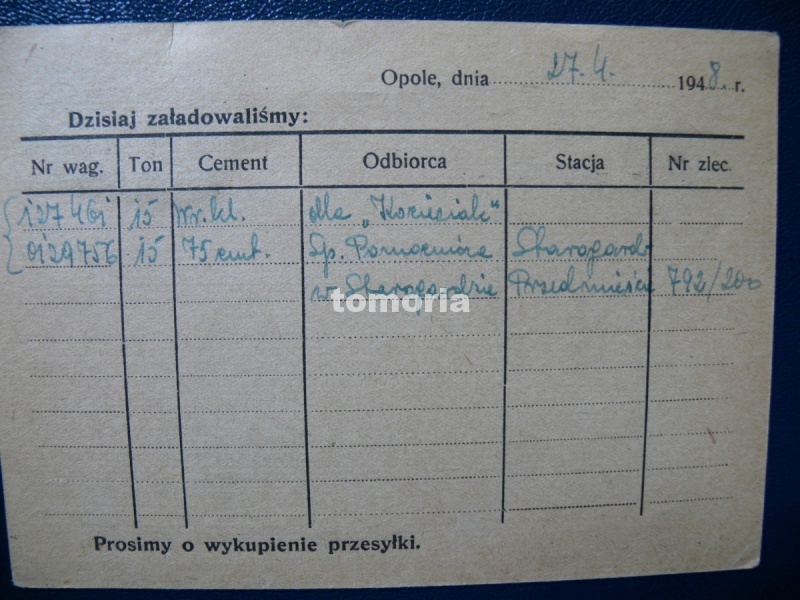 Opole, dnia 27.4. 1948. r.
Dzisiaj załadowaliśmy:
Nr wag. Ton Cement Odbiorca Stacja Nr zlec.
127461 15 wr.kl. dla „Kociewiak"
0129756 15 75 cmt. Sp. Pomocnicza Starogard
w Starogardzie Przedmieście 792/200
tomoria
Prosimy o wykupienie przesyłki.